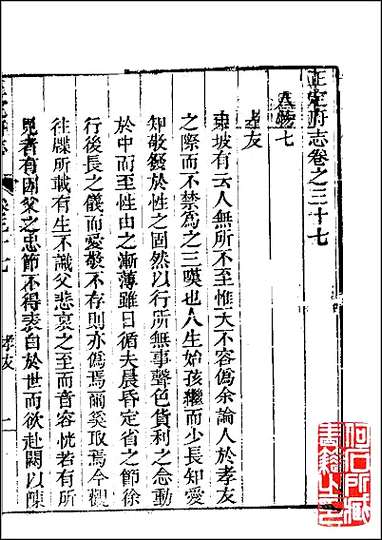 正定府志卷之三十七
人物七
孝友
東坡有云人無所不至惟天不容偽余論人於孝友
之際而不禁為之三嘆也人生始孩繼而少長知愛
知敬發於性之固然以行所無事聲色貨利之念動
於中而至性由之漸薄雖日循夫晨昏定省之節徐
行後長之儀而愛敬不存則亦偽焉爾奚取焉今觀
往牒所載有生不識父悲哀之至而音容恍若有所
見者有因父之忠節不得表白於世而欲赴闕以陳
孝友
一